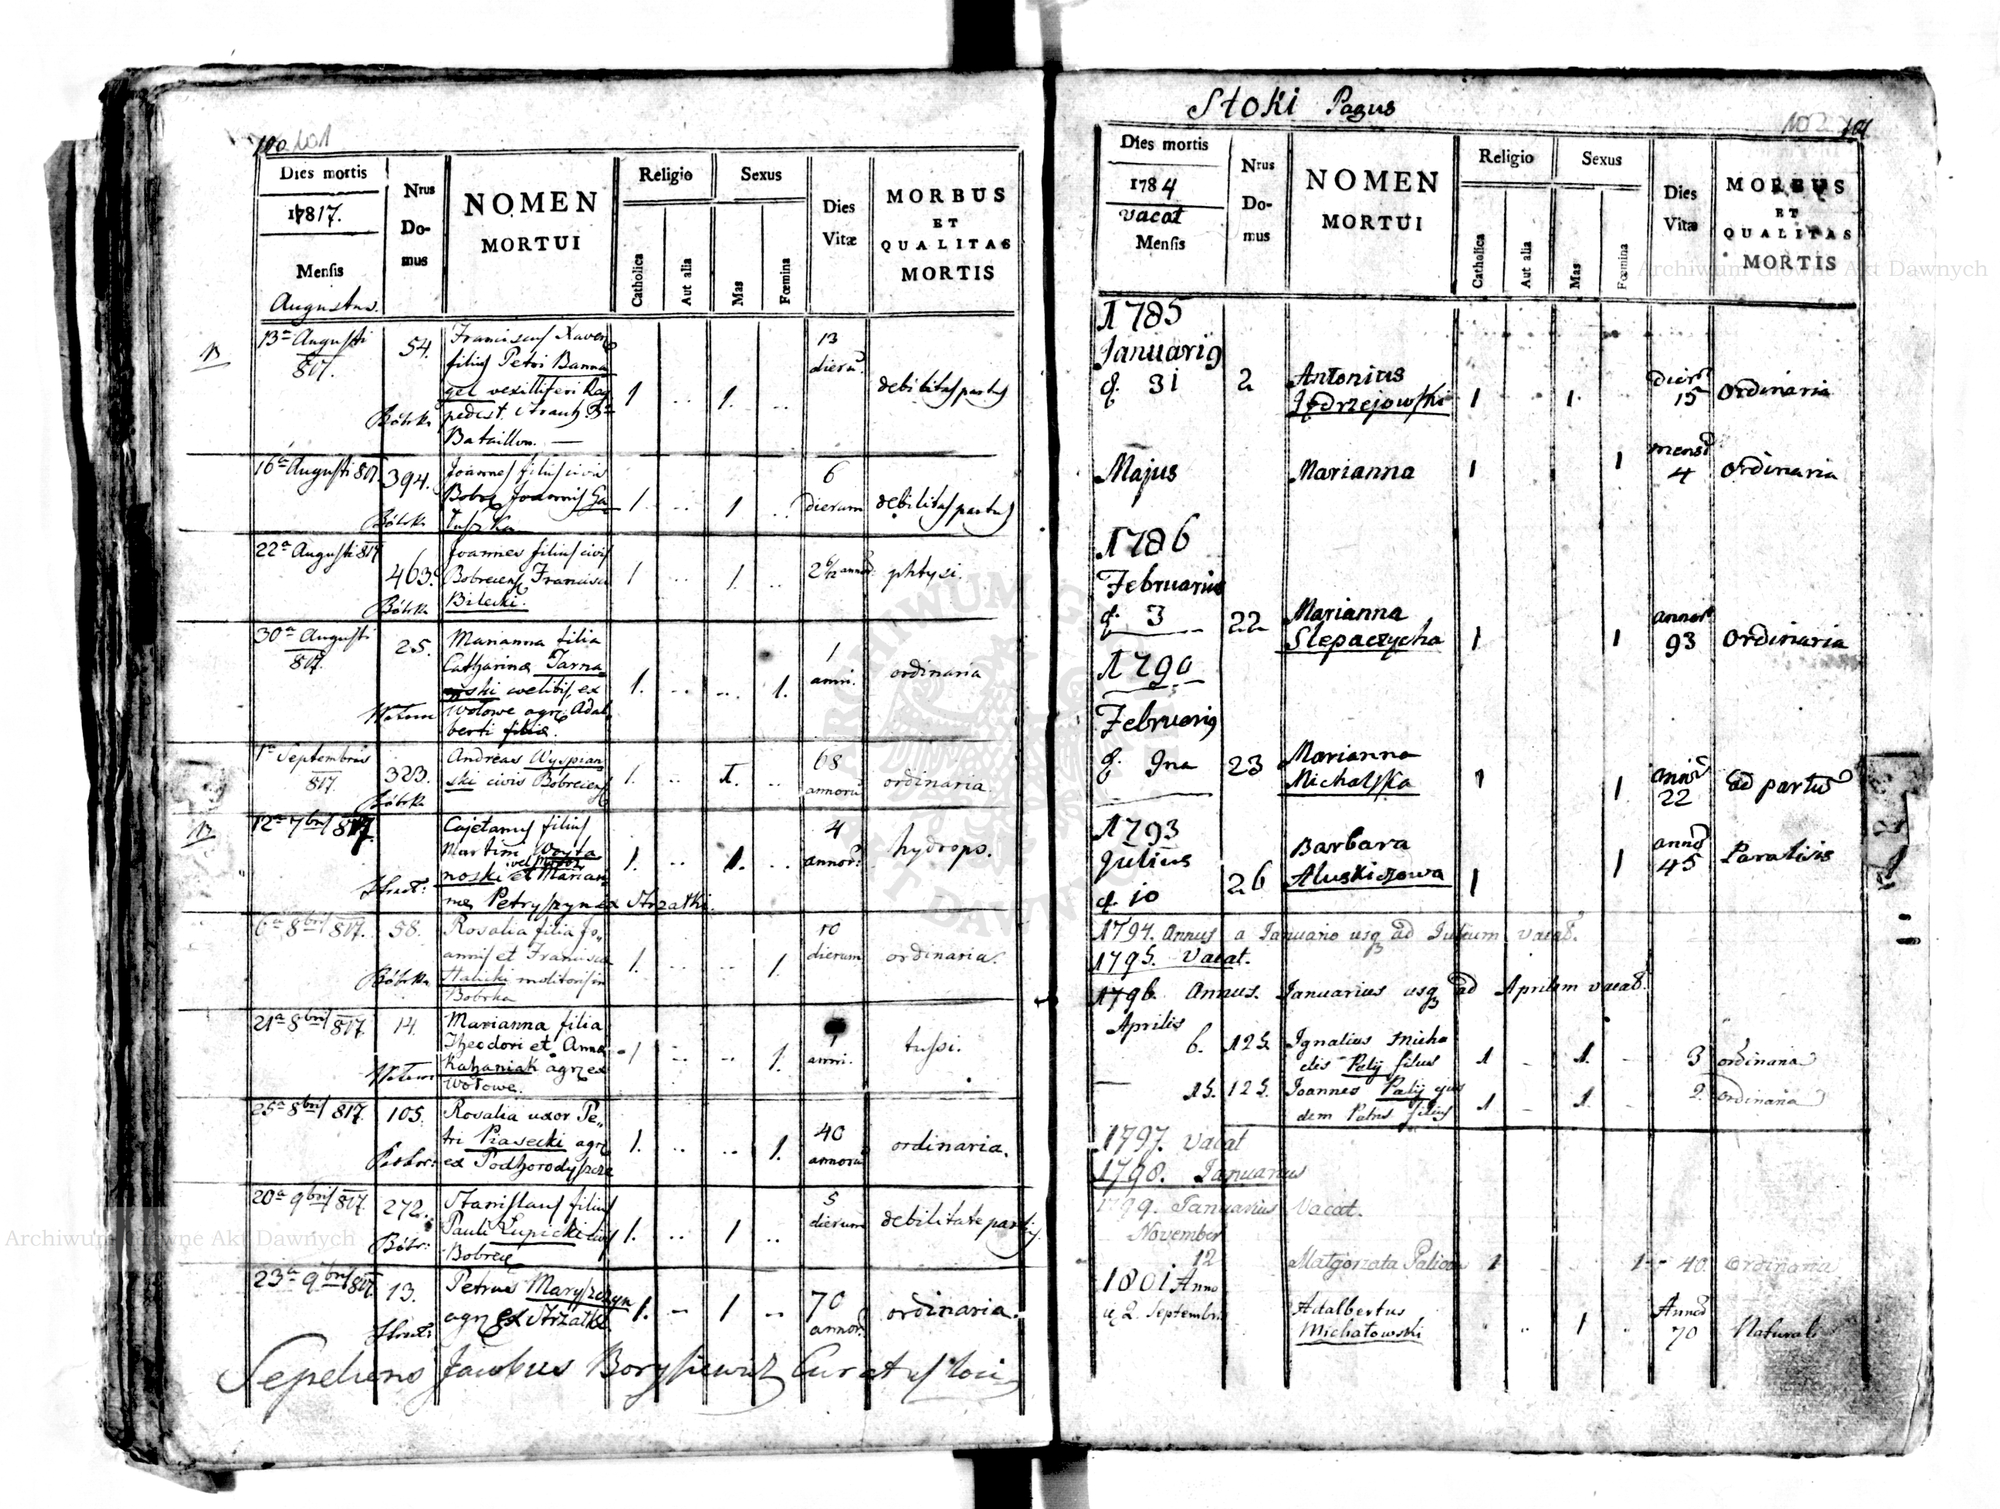 101
Dies mortis
1817.
Mensis
Augustus.
Nrus
Do-
mus
NOMEN
MORTUI
Religio
Catholica
Aut alia
Sexus
Mas
Fœmina
Dies
Vitæ
MORBUS
ET
QUALITAS
MORTIS
13
13a Augusti
817.
54.
Bóbrka
Franciscus Xaver
filius Petri Banna
gel vexilliferi Reg
Bataillon. —
1
1.
..
13
dierū
debilitas partus
16a Augusti 817.
394.
Bóbrka
Joannes filius civis
Bobrc Joannis Ga
łuszka
1.
..
1
..
6
dierum
debilitas partus
22a Augusti 817
463.
Bóbrka
Joannes filius civis
Bobrecens Francisci
Bilecki.
1
..
1.
..
2 6/12 annor
phtysi.
30a Augusti
817.
25.
Wołowe
Marianna filia
Catharinæ Tarna
wski coelibis, ex
Wołowe agr Adal
berti filiæ.
1.
..
..
1.
1
anni.
ordinaria
1a Septembris
817.
323.
Bóbrka
Andreas Wyspian
ski civis Bóbrecens
1.
..
1.
..
68
annorū
ordinaria
13
12a 7bris 817.
Cajetanus filius
Martini Woyta
noski et Marian
næ Petryszyn ex Strzałki.
1.
..
1.
..
4
annor.
hydrops.
6a 8bris 817.
58.
Bóbrka
Rosalia filia Jo-
annis et Francisca
Halicki molitoris in
Bobrka
1.
..
..
1.
10
dierum
ordinaria.
21a 8bris 817.
14.
Wołowe
Marianna filia
Theodori et Annæ
Kahaniak agr ex
Wołowe.
1
..
..
1.
1
anni.
tussi.
25a 8bris 817.
105.
Rosalia uxor Pe-
tri Piasecki agr
ex Podhorodyszcze
1.
..
..
1.
40
annorū
ordinaria.
20a 9bris 817.
272.
Bóbr:
Stanislaus filius
Pauli Łupicki civis
Bobrece
1.
..
1
..
5
dierum
debilitate partus
23a 9bris 817.
13.
Petrus Maryszczyn
agr ex Strzałki
1.
..
1
..
70
annor.
ordinaria.
Sepeliens Jacobus Borysiewicz Curatus loci
Stoki Pagus
102
Dies mortis
1784
vacat
Mensis
Nrus
Do-
mus
NOMEN
MORTUI
Religio
Catholica
Aut alia
Sexus
Mas
Fœmina
Dies
Vitæ
MORBUS
ET
QUALITAS
MORTIS
1785
Januarig
d. 31
2
Antonius
Jędrzejowski
1
1.
dier
15
Ordinaria
Majus
Marianna
1
1
mens
4
Ordinaria
1786
Februarius
d. 3
22
Marianna
Slepaczycha
1
1
annor
93
Ordinaria
1790
Februarig
d. 9na
23
Marianna
Michalska
1
1
annor
22
Ad partū
1793
Julius
d. 10
26
Barbara
Aluskiczowa
1
1
annor
45
Paralisis
1794. Annus a Januario usq ad Julium vacat.
1795. Vacat.
1796. Annus. Januarius usq ad Aprilem vacat.
Aprilis
6.
125.
Ignatius Micha
elis Palij filius
1
1.
3
ordinaria
15.
125.
Joannes Palij ejus
dem Patris filius
1
1.
2.
ordinaria
1797. Vacat
1798. Januarius
1799. Januarius Vacat.
November
12
Małgorzata Paliowa
1
1
40.
Ordinaria
1801 Anno
d 2. Septembris
Adalbertus
Michałowski
1
Annor
70
Naturali
Archiwum Główne Akt Dawnych
Archiwum Główne Akt Dawnych
ARCHIWUM GŁÓWNE AKT DAWNYCH